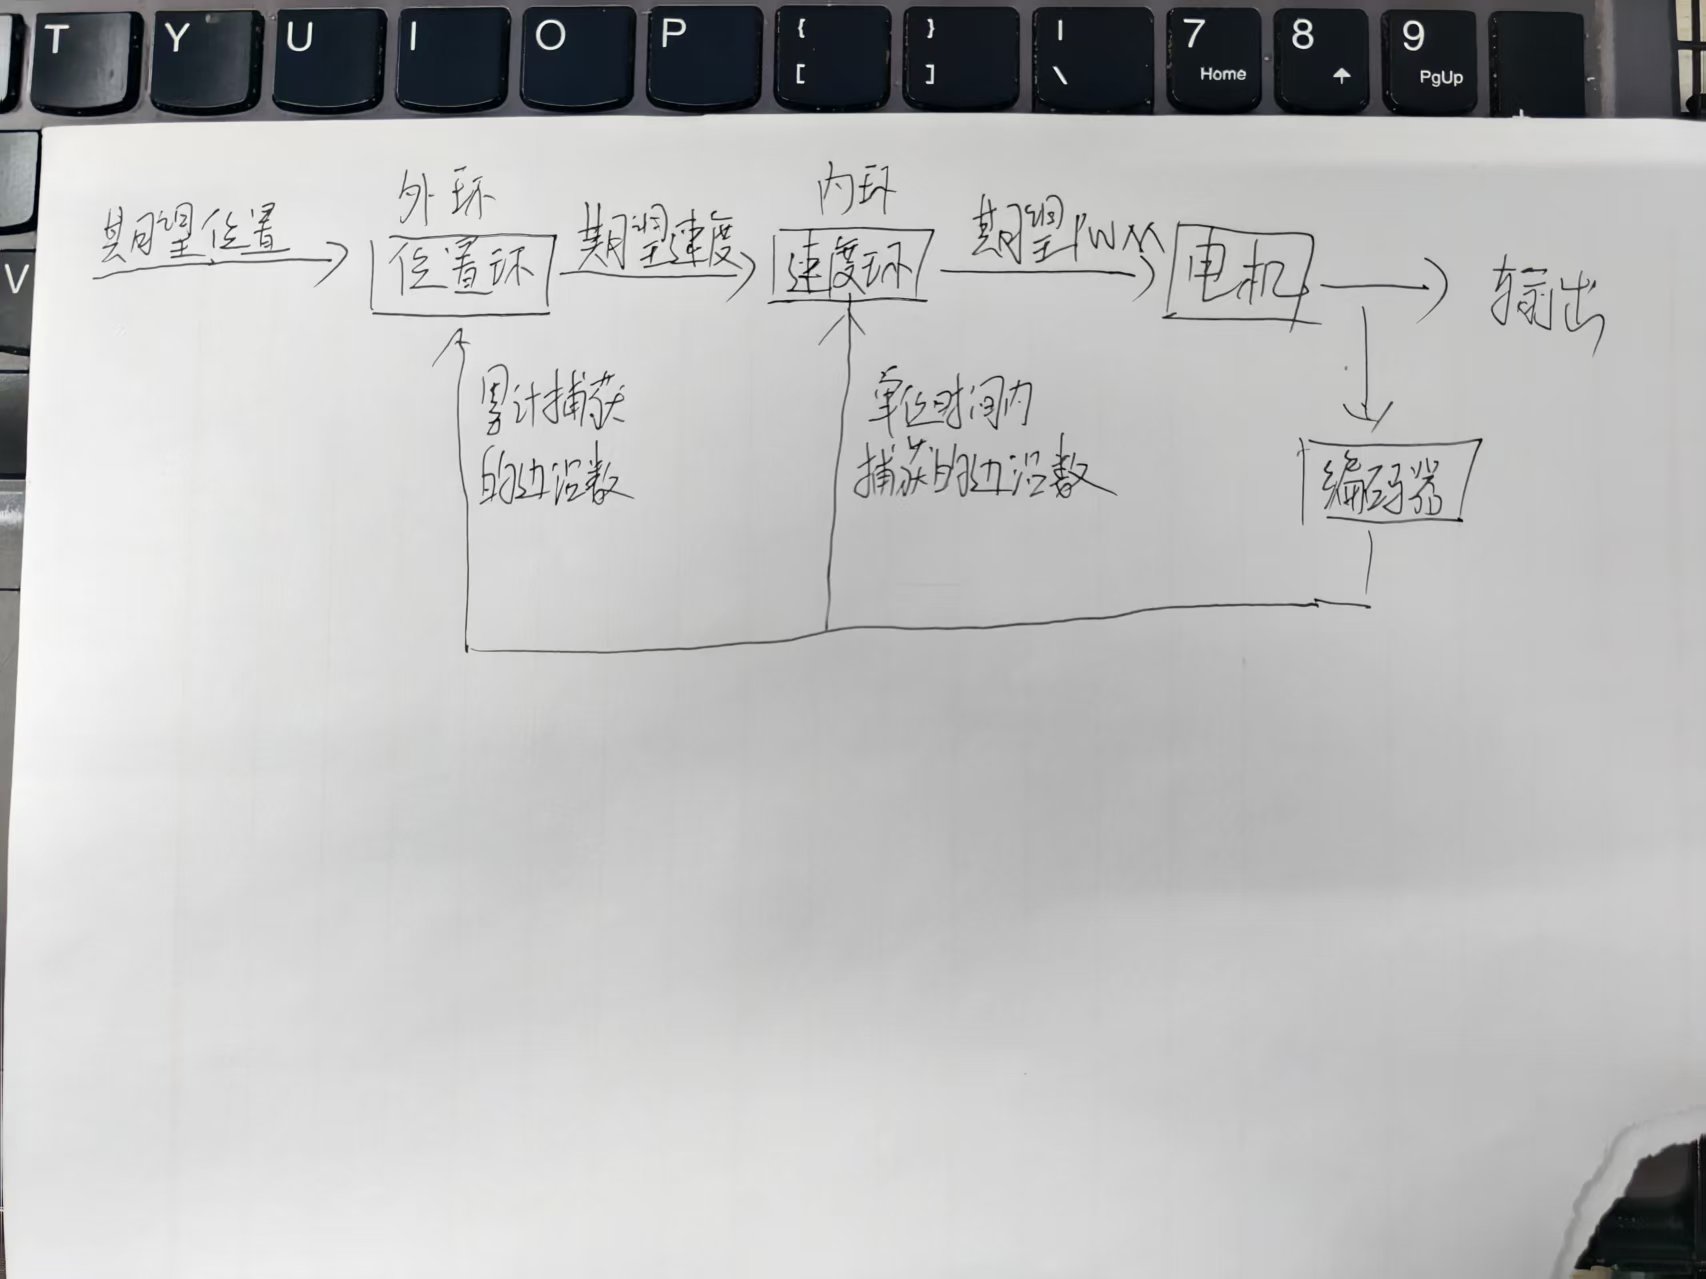 T Y U I O P { [ } ] | \ 7 Home 8 9 PgUp
V
外环
内环
期望位置
位置环
期望速度
速度环
期望PWM
电机
输出
累计捕获
的边沿数
单位时间内
捕获的边沿数
编码器